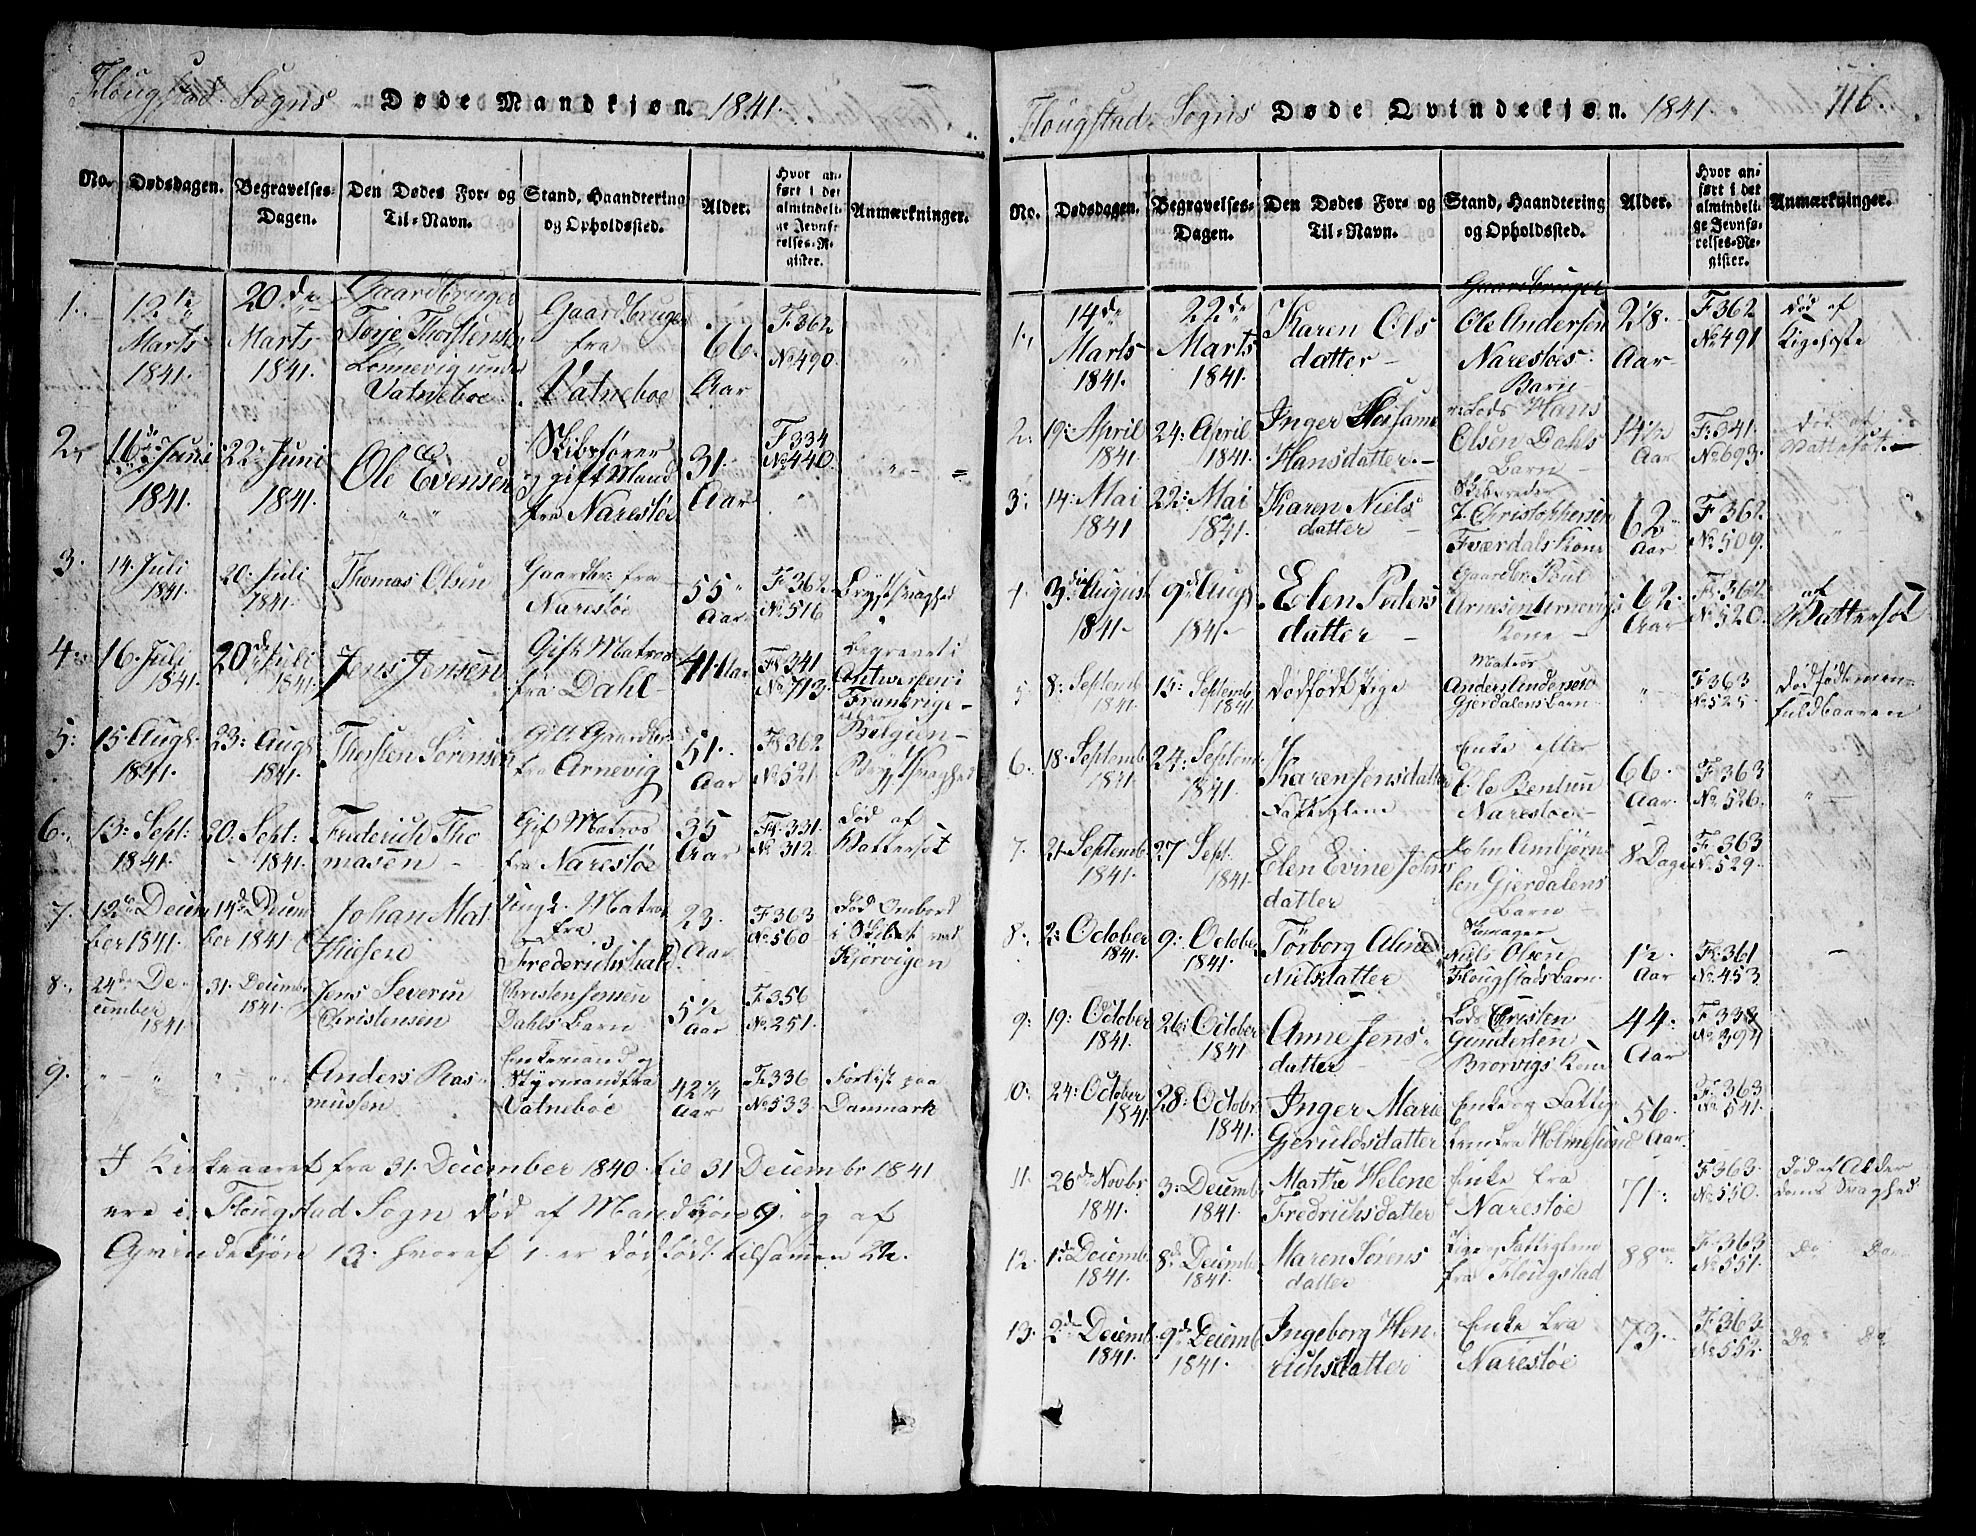 Flougstad Sogns Døde Mandkjøn. 1841.
No. Dødsdagen. Begravelses-Dagen. Den Dødes For- og Til-Navn. Stand, Haandtering og Opholdssted. Alder. Hvor anført i det almindelige Jevnførelses-Register. Anmærkninger.
1. 12te Marts 1841. 20de Marts 1841. Gaardbruger Terje Thorstensen Lonnevig under Vatneboe. Gaardbruger fra Vatneboe 66 Aar F. 362 No 490.
2. 16de Juni 1841. 22. Juni 1841. Ole Evensen Skibsfører og gift Mand fra Narestøe 31. Aar F 334 No 440
3. 14. Juli 1841. 20. Juli 1841. Thomas Olsen Gaardbr. fra Narestøe 55 Aar F. 362 No 516 Brystsvaghed
4. 16. Juli 1841. 20de Juli 1841. Jens Jensen Gift Matros fra Dahl 41 Aar Fl 341 No 713. Begravet i Antwerpen i Frankrige eller Belgien
5. 15. Augst 1841. 23. Augst 1841. Thorsten Sørensen Gift Gaardbr. fra Arnevig 51. Aar Fl 362 No 521. Brystsvaghed
6. 13. Sept: 1841. 20. Sept: 1841. Frederich Thomasen Gift Matros fra Narestøe 35 Aar Fl. 331. No 312. Død af Wattersot
7. 12te December 1841. 14de December 1841 Johan Mathiesen Ungk. Matros fra Frederichshald 23. Aar F. 363 No 560 Død Ombord i Skibet ved Kjørvigen
8. 24de December 1841. 31. December 1841. Jens Severin Christensen Christen Jensen Dahls Barn 5½ Aar F. 356 No. 251.
9. Anders Rasmussen Enkemand og Styrmand fra Vatnebøe 42¼ Aar F. 336 No. 533. Forlist paa Danmark
I Kirkeaaret fra 31. December 1840. til 31 Decembr 1841
ere i Flougstad Sogn død af Mandkjøn 9. og af
Qvindekjøn 13. hvoraf 1. er dødfødt. tilsamen 22.
Flougstad Sogns Døde Qvindekjøn. 1841. 116.
No. Dødsdagen. Begravelses-Dagen. Den Dødes For- og Til-Navn. Stand, Haandtering og Opholdssted. Alder. Hvor anført i det almindelige Jevnførelses-Register. Anmærkninger.
1. 14de Marts 1841. 22de Marts 1841. Karen Olsdatter Gaardbruger Ole Andersen Narestøes Barn 2 1/8. Aar F 362 No 491 død af Kigehoste
2. 19. April 1841. 24. April 1841. Inger Hansdatter. Lods Hans Olsen Dahls Barn 14½ Aar F. 341. No 693. Død af Wattersot
3. 14. Mai 1841 22. Mai 1841. Karen Nielsdatter Skibsreder Christophersen Kone 62 Aar F 362 No 509.
4. 3die August 1841. 9de Augst 1841. Elen Pedersdatter Gaardbr. Poul Arnesen Arnevigs Kone 62. Aar F. 362 No 520. af Wattersot
5 8. Septemb 1841. 15. Septemb 1841 dødfødt Pige Matros Anders Andersen Gjerdalens Barn F 363 No 525. Dødfødt men fuldbaaren
6. 18. Septemb 1841 24. Septemb 1841. Karen Jensdatter Fattiglem Enke efter Ole Bentsen Narestøe. 66. Aar. F. 363 No. 526.
7. 21. Septemb 1841. 27 Sept. 1841. Elen Evine Johnsdatter John Ambjørnsen Gjerdalens Barn 8 Dage F. 363 No 529.
8. 2. October 1841. 9. October 1841. Torborg Aline Nielsdatter Skomager Niels Olsen Flougstads Barn 1½. Aar F. 361 No 453
9. 19. October 1841. 26. October 1841 Anne Jensdatter Lods Christen Gundersen Brorvigs Kone 44. Aar F 338 No 394
10. 24. October 1841 28. Octobr 1841. Inger Marie Gjeruldsdatter Enke og Fattiglem fra Holmesund 56. Aar. F. 363 No. 541.
11. 26de Novbr 1841. 3. Decembr 1841. Marthe Helene Fredrichsdatter Enke fra Narestøe 71. F. 363. No 550. Død af Alderdoms Svaghed
12. 1ste Decemb. 1841. 8de Decemb. 1841. Maren Sørensdatter Pige og Fattiglem fra Flougstad 88 F. 363 No 551. Do Do
13. 2den Decemb. 1841. 9de Decemb. 1841. Ingeborg Henrichsdatter Enke fra Narestøe 73. F. 363 No 552. Do Do